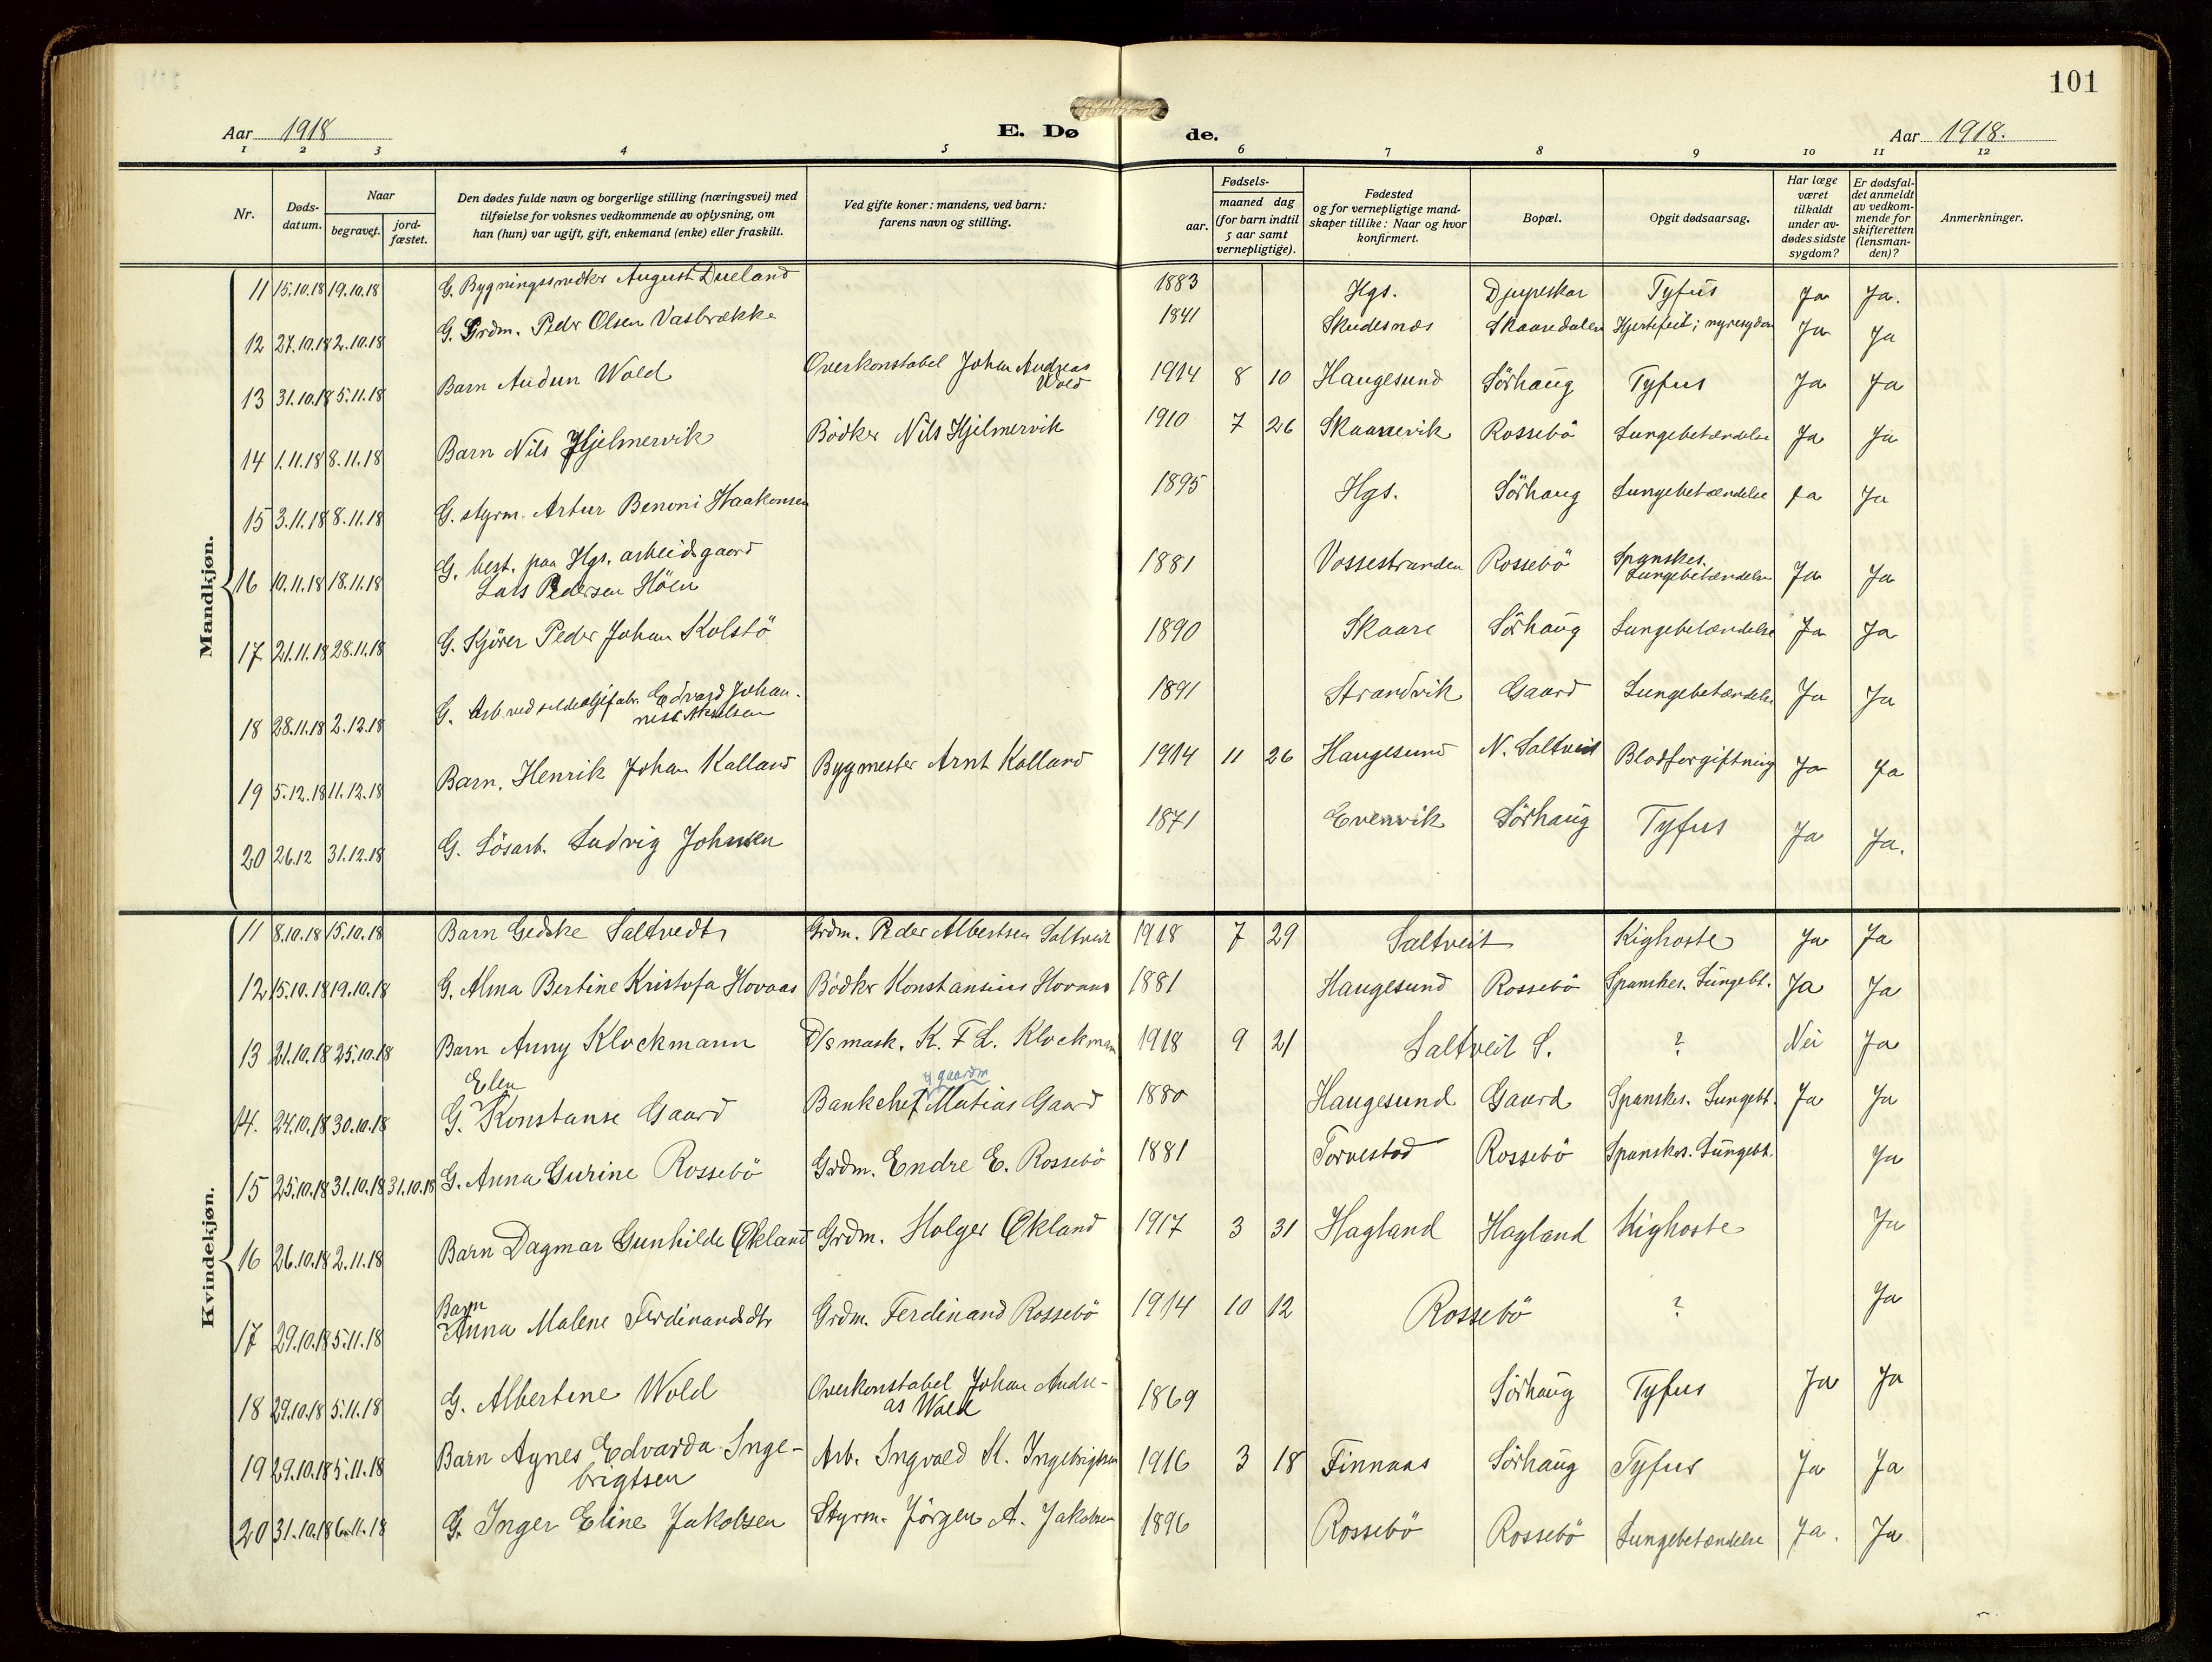 101
Aar 1918
E. Dø de.
Aar 1918.
1 2 3 4 5 6 7 8 9 10 11 12
Nr.
Døds-
datum.
Naar
begravet.
jord-
fæstet.
Den dødes fulde navn og borgerlige stilling (næringsvei) med
tilføielse for voksnes vedkommende av oplysning, om
han (hun) var ugift, gift, enkemand (enke) eller fraskilt.
Ved gifte koner: mandens, ved barn:
farens navn og stilling.
Fødsels-
aar.
maaned dag
(for barn indtil
5 aar samt
vernepligtige).
Fødested
og for vernepligtige mand-
skaper tillike: Naar og hvor
konfirmert.
Bopæl.
Opgit dødsaarsag.
Har læge
været
tilkaldt
under av-
dødes sidste
sygdom?
Er dødsfal-
det anmeldt
av vedkom-
mende for
skifteretten
(lensman-
den)?
Anmerkninger.
Mandkjøn.
11 15.10.18 19.10.18 G. Bygningssnedker August Dueland 1883 Hgs. Djupeskar Tyfus Ja Ja.
12 27.10.18 2.10.18 G. Grdm. Peder Olsen Vasbrække 1841 Skudesnæs Skaaredalen Hjertefeil; nyresygdom Ja Ja
13 31.10.18 5.11.18 Barn Audun Wold Overkonstabel Johan Andreas
Wold 1914 8 10 Haugesund Sörhaug Tyfus Ja Ja
14 1.11.18 8.11.18 Barn Nils Hjelmervik Bödker Nils Hjelmervik 1910 7 26 Skaanevik Rossebö Lungebetændelse Ja Ja
15 3.11.18 8.11.18 G. styrm. Artur Benoni Haakonsen 1895 Hgs. Sörhaug Lungebetændelse Ja Ja
16 10.11.18 18.11.18 G. best. paa Hgs. arbeidsgaard
Lars Pedersen Höen 1881 Vossestranden Rossebö Spanskes.
Lungebetændelse Ja Ja
17 21.11.18 28.11.18 G. Kjörer Peder Johan Kolstö 1890 Skaare Sörhaug Lungebetændelse Ja Ja
18 28.11.18 2.12.18 G. Arb. ved sildoljefabr. Edvard Johan-
ness Akselsen 1891 Strandvik Gaard Lungebetændelse Ja Ja
19 5.12.18 11.12.18 Barn. Henrik Johan Kalland Bygmester Arnt Kalland 1914 11 26 Haugesund N. Saltveit Blodforgiftning Ja Ja
20 26.12 31.12.18 G. Lösarb. Ludvig Johnsen 1871 Evenvik Sörhaug Tyfus Ja Ja.
Kvindekjøn.
11 8.10.18 15.10.18 Barn Gedske Saltvedt Grdm. Peder Albertsen Saltveit 1918 7 29 Saltveit Kighoste Ja Ja
12 15.10.18 19.10.18 G. Alma Bertine Kristofa Hovaas Bödker Konstansius Hovaas 1881 Haugesund Rossebö Spanskes. Lungebt. Ja Ja
13 21.10.18 25.10.18 Barn Anny Klockmann D/s mask. K. F. L. Klockmann 1918 9 21 Saltveit S. ? Nei Ja
14. 24.10.18 30.10.18 Elen
G. Konstanse Gaard Bankchef & gaardm Matias Gaard 1880 Haugesund Gaard Spanskes. Lungebt. Ja Ja
15 25.10.18 31.10.18 31.10.18 G. Anna Gurine Rossebö Grdm. Endre E. Rossebö 1881 Torvestad Rossebö Spanskes. Lungebt. Ja
16 26.10.18 2.11.18 Barn Dagmar Gunhilde Økland Grdm. Holger Økland 1917 3 31 Hagland Hagland Kighoste Ja
17 29.10.18 5.11.18 Barn
Anna Malene Ferdinandsdtr Grdm. Ferdinand Rossebö 1914 10 12 Rossebö ? Ja
18 29.10.18 5.11.18 G. Albertine Wold Overkonstabel Johan Andre-
as Wold 1869 Sörhaug Tyfus Ja Ja
19 29.10.18 5.11.18 Barn Agnes Edvarda Inge-
brigtsen Arb. Ingvald K. Ingebrigtsen 1916 3 18 Finnaas Sörhaug Tyfus Ja Ja
20 31.10.18 6.11.18 G. Inger Eline Jakobsen Styrm. Jörgen A. Jakobsen 1896 Rossebö Rossebö Lungebetændelse Ja. Ja